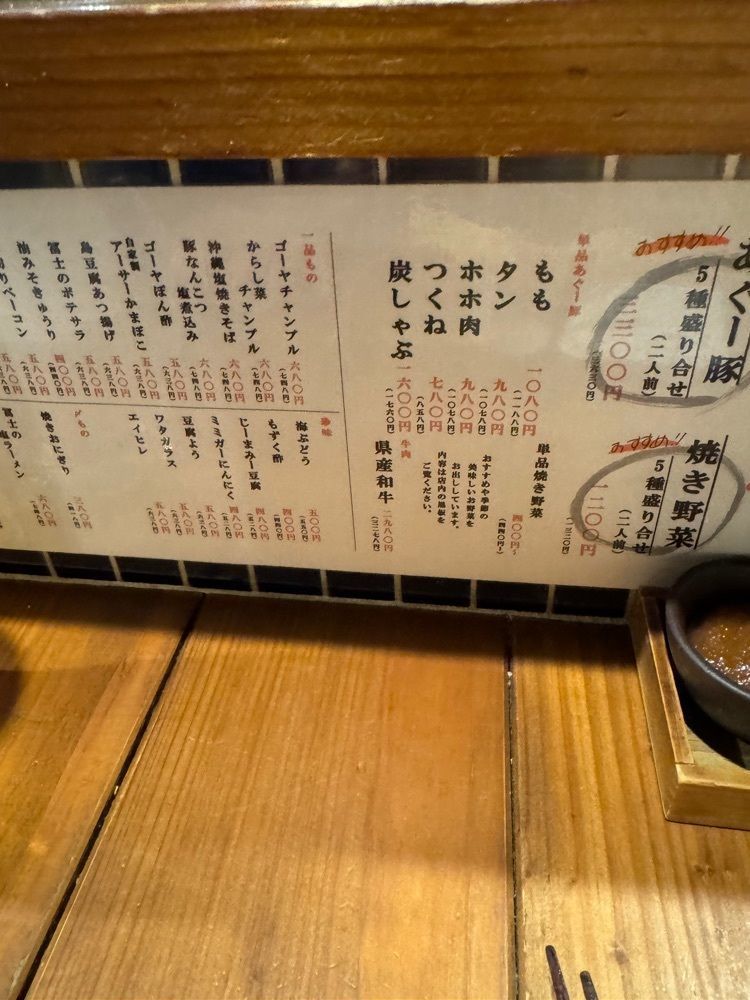 あぐー豚
おすすめ!!
5種盛り合せ
(二人前)
三三〇〇円
(三六三〇円)
焼き野菜
おすすめ!!
5種盛り合せ
(二人前)
一二〇〇円
(一三二〇円)
単品あぐー豚
もも
一〇八〇円
(一一八八円)
タン
九八〇円
(一〇七八円)
ホホ肉
九八〇円
(一〇七八円)
つくね
七八〇円
(八五八円)
炭しゃぶ
一六〇〇円
(一七六〇円)
単品焼き野菜
四〇〇円~
(四四〇円~)
おすすめや季節の
美味しいお野菜を
お出ししています。
内容は店内の黒板を
ご覧ください。
牛肉
県産和牛
二九八〇円
(三二七八円)
一品もの
ゴーヤチャンプル
六八〇円
(七四八円)
からし菜
チャンプル
六八〇円
(七四八円)
沖縄塩焼きそば
六八〇円
(七四八円)
豚なんこつ
塩煮込み
六八〇円
(七四八円)
ゴーヤぽん酢
五八〇円
(六三八円)
自家製
アーサーかまぼこ
五八〇円
(六三八円)
島豆腐あつ揚げ
五八〇円
(六三八円)
冨士のポテサラ
四〇〇円
(四四〇円)
油みそきゅうり
五八〇円
(六三八円)
ベーコン
五八〇円
(六三八円)
珍味
海ぶどう
五〇〇円
(五五〇円)
もずく酢
四〇〇円
(四四〇円)
じーまみー豆腐
四八〇円
(五二八円)
ミミガーにんにく
四八〇円
(五二八円)
豆腐よう
五八〇円
(六三八円)
ワタガラス
五八〇円
(六三八円)
エイヒレ
五八〇円
(六三八円)
〆もの
焼きおにぎり
三八〇円
(四一八円)
冨士の
塩ラーメン
六八〇円
(七四八円)